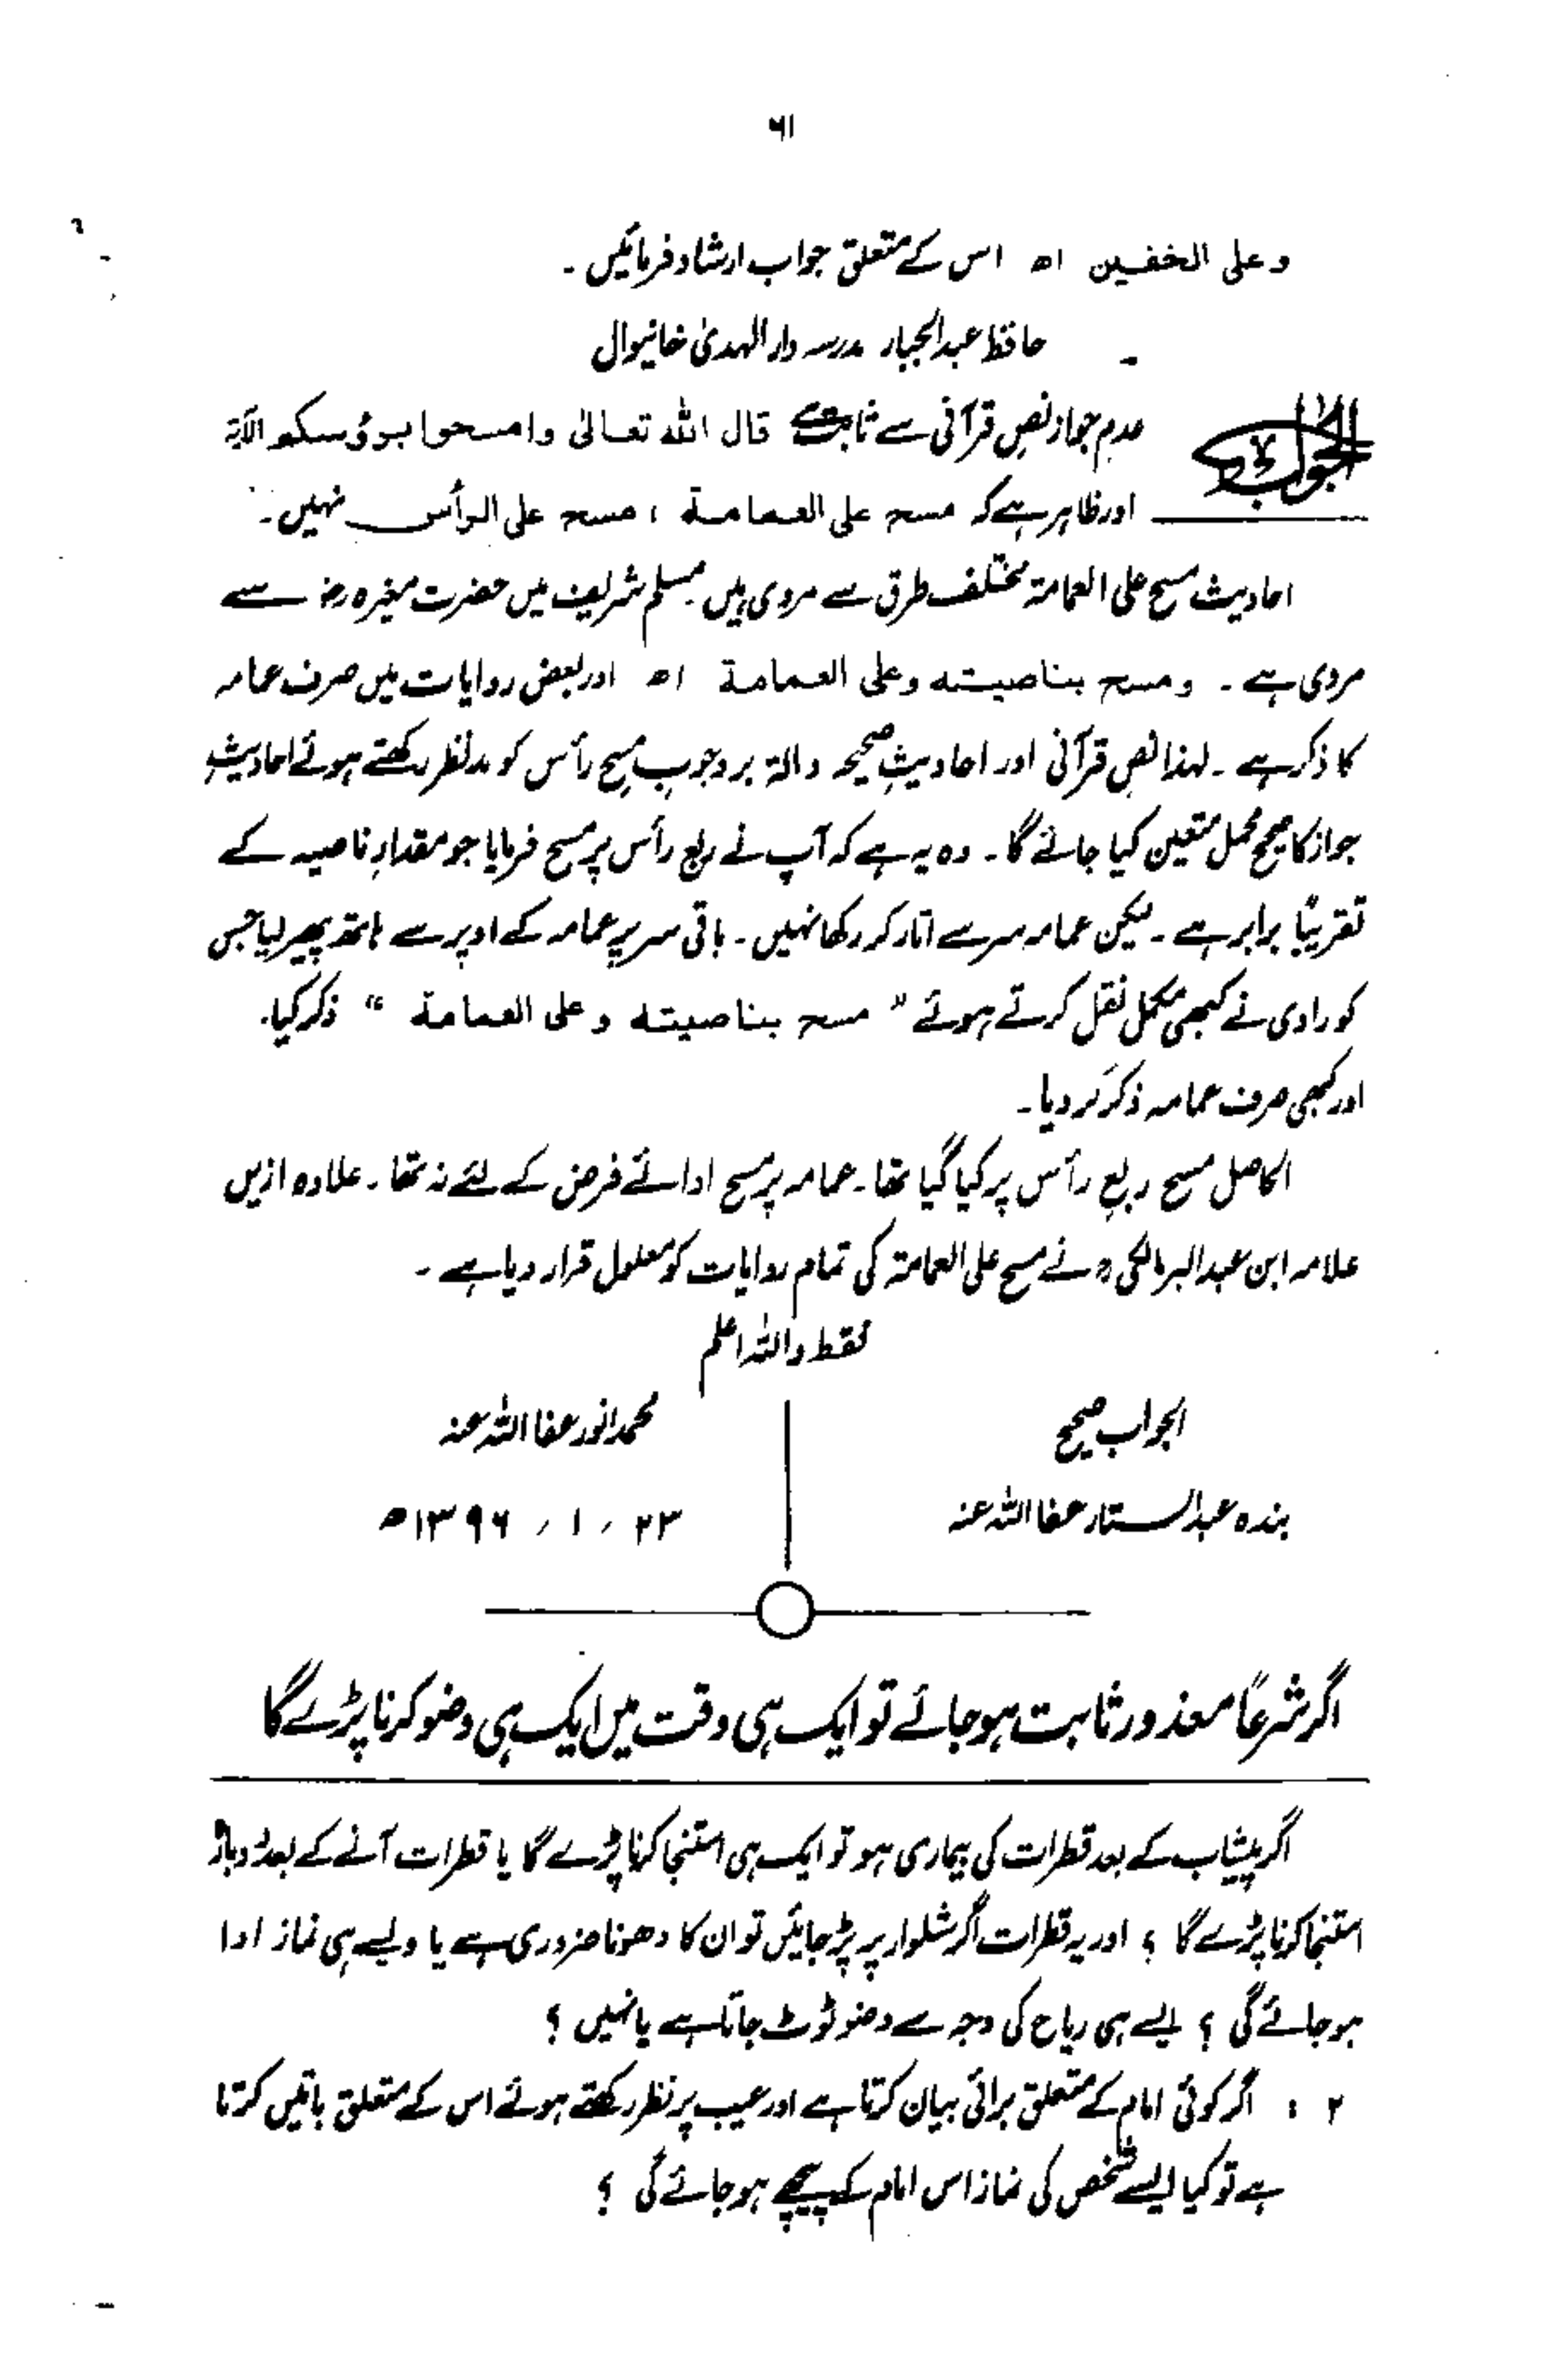 ۶۱
وعلی الخفسین اھ اس کے متعلق جواب ارشاد فرمائیں ۔
حافظ عبدالجبار مدرسہ دار الہدیٰ خانیوال
الجواب عدم جواز نص قرآنی سے ثابت ہے قال اللہ تعالیٰ وامسحوا برؤسکم الآیۃ
اور ظاہر ہے کہ مسح علی العمامۃ ، مسح علی الرأس نہیں ۔
احادیث مسح علی العمامۃ مختلف طرق سے مروی ہیں ۔ مسلم شریف میں حضرت مغیرہ رضؓ سے
مروی ہے ۔ ومسح بناصیته وعلی العمامۃ اھ اور بعض روایات میں صرف عمامہ
کا ذکر ہے ۔ لہذا نص قرآنی اور احادیثِ صحیحہ دالۃ بر وجوبِ مسح رأس کو مدنظر رکھتے ہوئے احادیثِ
جواز کا صحیح محمل متعین کیا جائے گا ۔ وہ یہ ہے کہ آپ نے ربع رأس پر مسح فرمایا جو مقدارِ ناصیہ کے
تقریباً برابر ہے ۔ لیکن عمامہ سر سے اتار کر رکھا نہیں ۔ باقی سر پر عمامہ کے اوپر سے ہاتھ پھیر لیا جس
کو راوی نے کبھی مکمل نقل کرتے ہوئے " مسح بناصیته وعلی العمامۃ " ذکر کیا ۔
اور کبھی صرف عمامہ ذکر کر دیا ۔
الحاصل مسح ربع رأس پر کیا گیا تھا ۔ عمامہ پر مسح ادائے فرض کے لئے نہ تھا ۔ علاوہ ازیں
علامہ ابن عبدالبر مالکیؒ نے مسح علی العمامۃ کی تمام روایات کو معلول قرار دیا ہے ۔
فقط واللہ اعلم
الجواب صحیح
بندہ عبدالستار عفا اللہ عنہ
محمد انور عفا اللہ عنہ
۲۳ ؍ ۱ ؍ ۱۳۹۶ھ
اگر شرعاً معذور ثابت ہو جائے تو ایک ہی وقت میں ایک ہی وضو کرنا پڑے گا
اگر پیشاب کے بعد قطرات کی بیماری ہو تو ایک ہی استنجا کرنا پڑے گا یا قطرات آنے کے بعد دوبارہ
استنجا کرنا پڑے گا ؟ اور یہ قطرات اگر شلوار پر پڑ جائیں تو ان کا دھونا ضروری ہے یا ویسے ہی نماز ادا
ہو جائے گی ؟ ایسے ہی ریاح کی وجہ سے وضو ٹوٹ جاتا ہے یا نہیں ؟
۲ : اگر کوئی امام کے متعلق برائی بیان کرتا ہے اور عیب پر نظر رکھتے ہوئے اس کے متعلق باتیں کرتا
ہے تو کیا ایسے شخص کی نماز اس امام کے پیچھے ہو جائے گی ؟